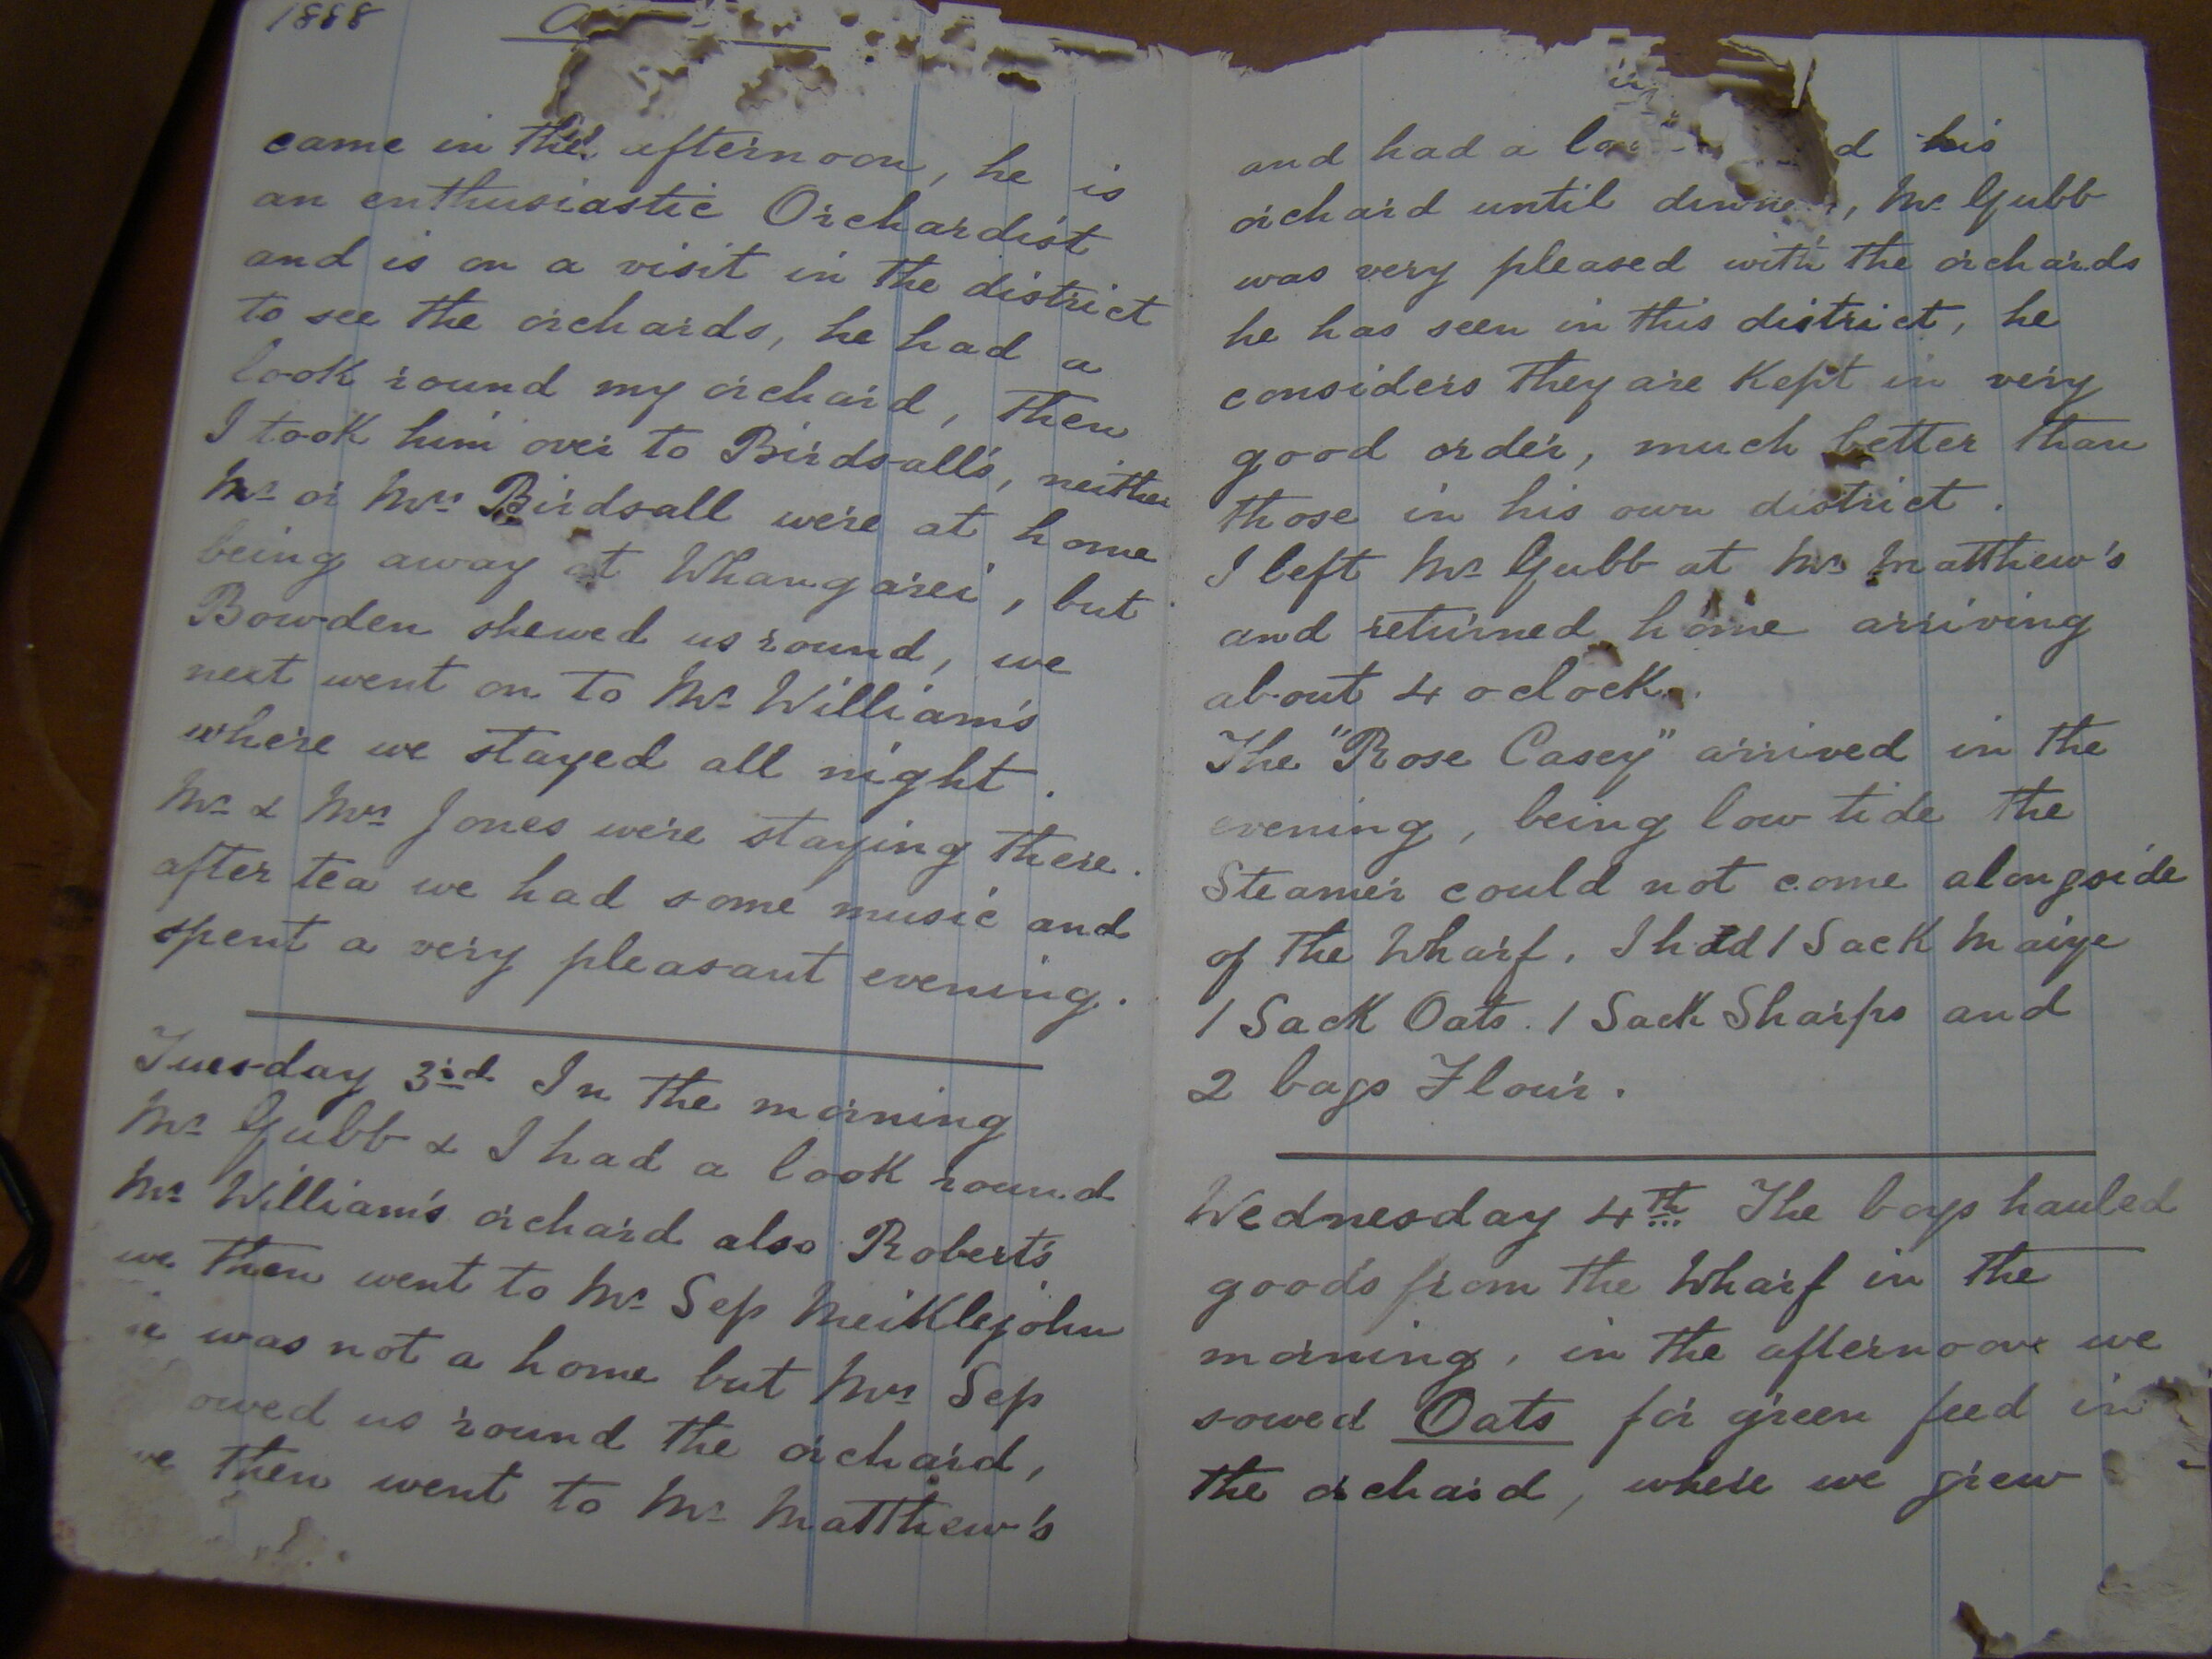 1888
came in the afternoon, he is
an enthusiastic Orchardist
and is on a visit in the district
to see the orchards, he had a
look round my orchard, then
I took him over to Birdsall's, neither
Mr or Mrs Birdsall were at home
being away at Whangarei, but
Bowden shewed us round, we
next went on to Mr William's
where we stayed all night.
Mr & Mrs Jones were staying there.
after tea we had some music and
spent a very pleasant evening.
Tuesday 3rd In the morning
Mr Gubb & I had a look round
Mr William's orchard also Robert's
we then went to Mr Sep Meiklejohn
was not a home but Mrs Sep
owed us round the orchard,
we then went to Mr Matthew's
and had a his
orchard until dinner, Mr Gubb
was very pleased with the orchards
he has seen in this district, he
considers they are Kept in very
good order, much better than
those in his own district.
I left Mr Gubb at Mr Matthew's
and returned home arriving
about 4 oclock.
The "Rose Casey" arrived in the
evening, being low tide the
Steamer could not come alongside
of the Wharf. I had 1 Sack Maize
1 Sack Oats. 1 Sack Sharps and
2 bags Flour.
Wednesday 4th The boys hauled
goods from the Wharf in the
morning, in the afternoon we
sowed Oats for green feed in
the orchard, where we grew